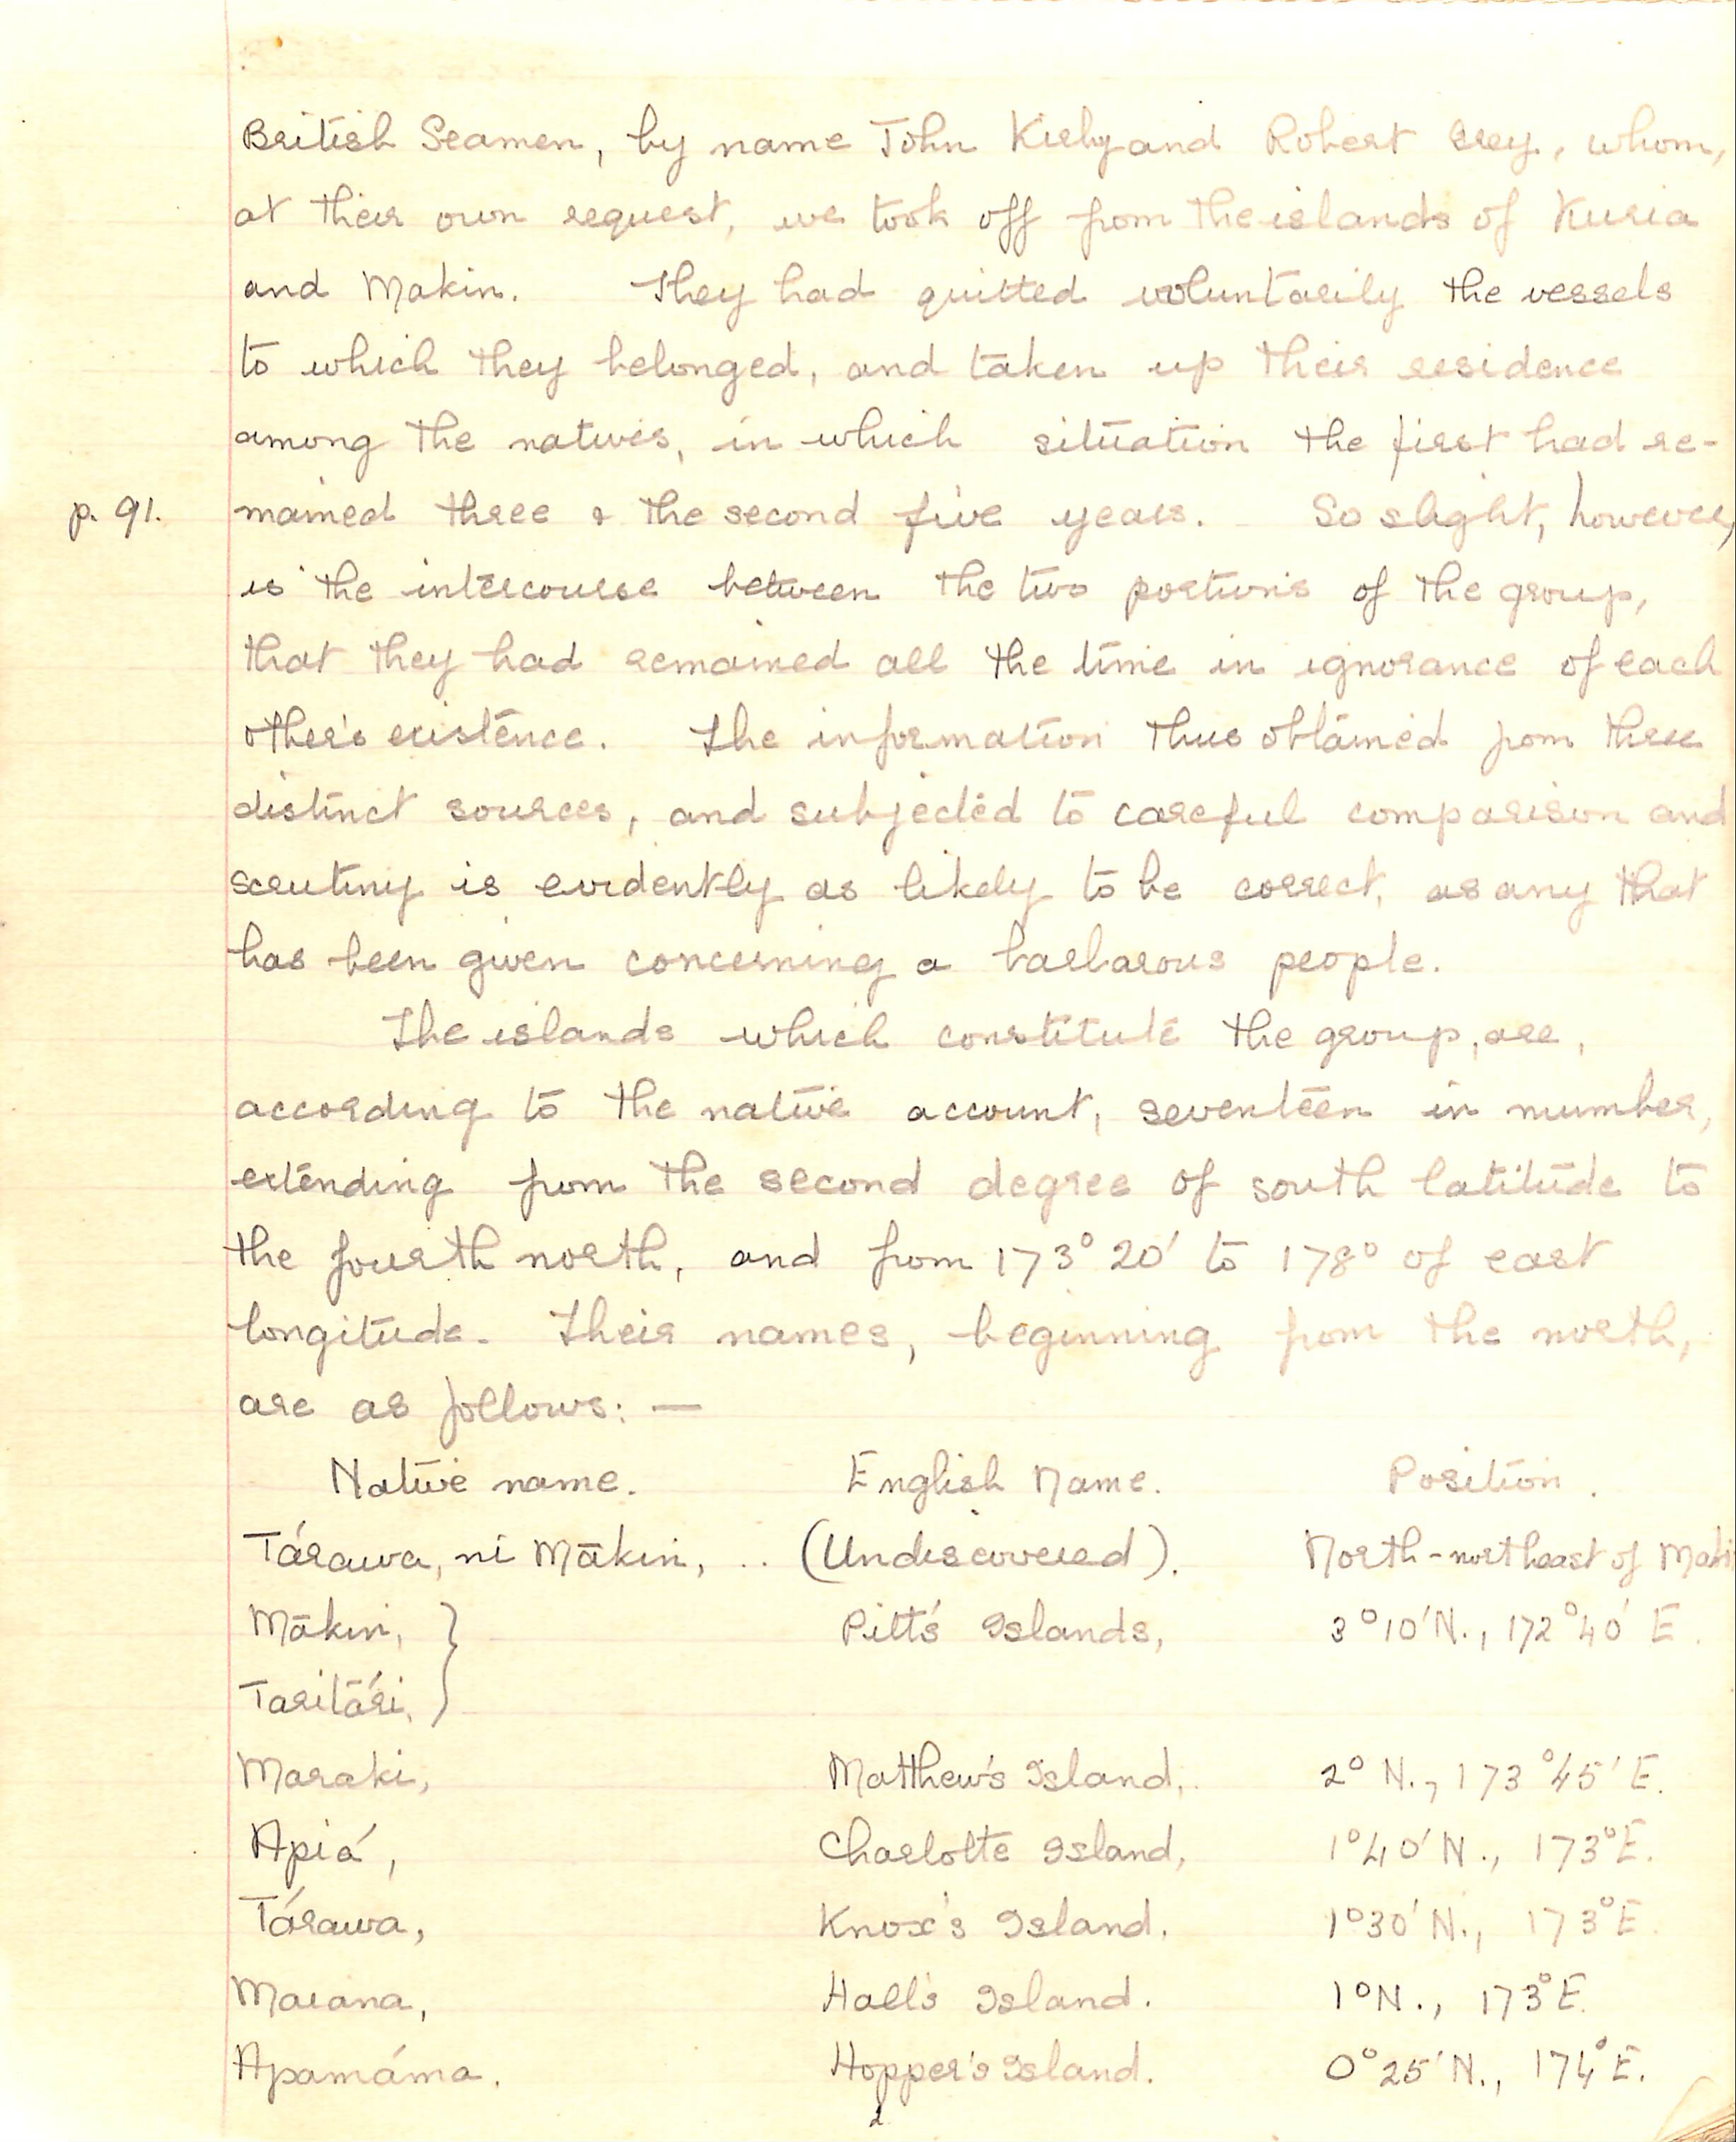 British Seamen, by name John Kirby and Robert Grey, whom,
at their own request, we took off from the islands of Kuria
and Makin. They had quitted voluntarily the vessels
to which they belonged, and taken up their residence
among the natives, in which situation the first had re-
p. 91. mained three & the second five years. So slight, however,
is the intercourse between the two portions of the group,
that they had remained all the time in ignorance of each
other's existence. The information thus obtained from three
distinct sources, and subjected to careful comparison and
scrutiny is evidently as likely to be correct, as any that
has been given concerning a barbarous people.
The islands which constitute the group, are,
according to the native account, seventeen in number,
extending from the second degree of south latitude to
the fourth north, and from 173° 20' to 178° of east
longitude. Their names, beginning from the north,
are as follows: —
Native name. English Name. Position.
Tárawa, ni Mākin, .. (Undiscovered). North-northeast of
Mākin, } Pitt's Islands, 3°10'N., 172°40' E.
Taritári, }
Maraki, Matthew's Island, 2° N., 173°45' E.
Apiá, Charlotte Island, 1°40' N., 173°E.
Tárawa, Knox's Island. 1°30' N., 173°E.
Maiana, Hall's Island. 1°N., 173°E.
Apamáma. Hopper's Island. 0°25'N., 174°E.
2